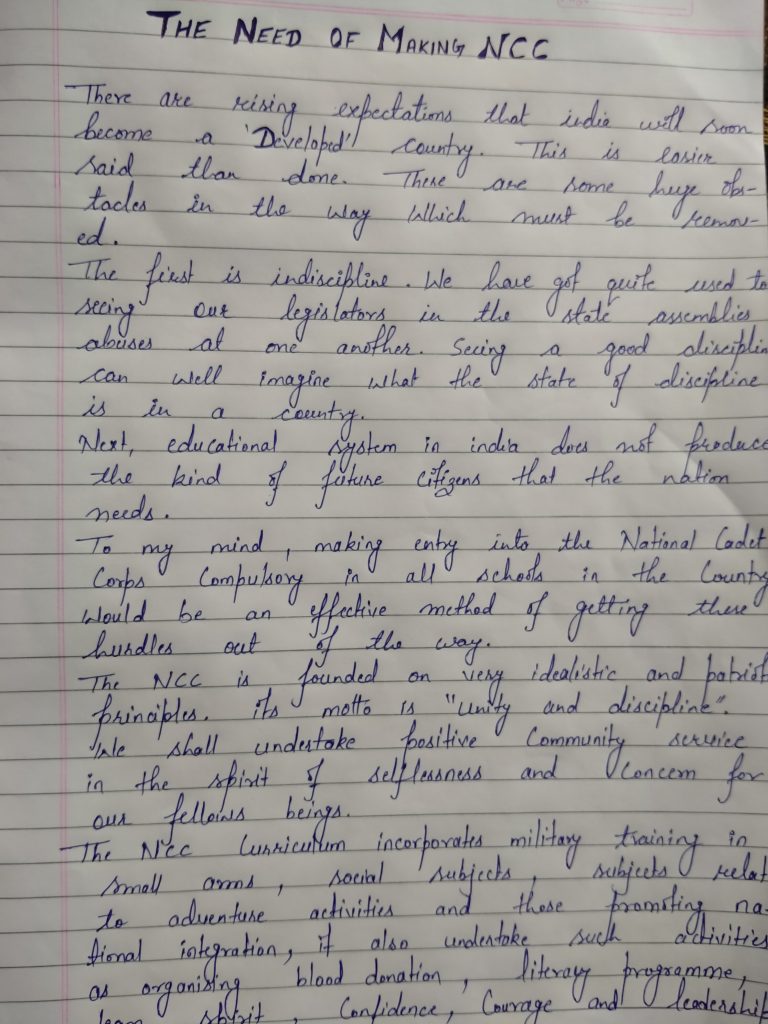 THE NEED OF MAKING NCC
There are rising expectations that india will soon
become a 'Developed' country. This is easier
said than done. There are some huge obs-
tacles in the way which must be remov-
ed.
The first is indiscipline. We have got quite used to
seeing our legislators in the state assemblies
abuses at one another. Seeing a good disciplin
can well imagine what the state of discipline
is in a country.
Next, educational system in india does not produce
the kind of future citizens that the nation
needs.
To my mind, making entry into the National Cadet
Corps Compulsory in all schools in the Country
would be an effective method of getting these
hurdles out of the way.
The NCC is founded on very idealistic and patriot
principles. its motto is "unity and discipline".
We shall undertake positive Community service
in the spirit of selflessness and Concern for
our fellows beings.
The NCC Curriculum incorporates military training in
small arms, social subjects, subjects relat
to adventure activities and those promoting na-
tional integration, it also undertake such activities
as organising blood donation, literacy programme,
team spirit, Confidence, Courage and leadership